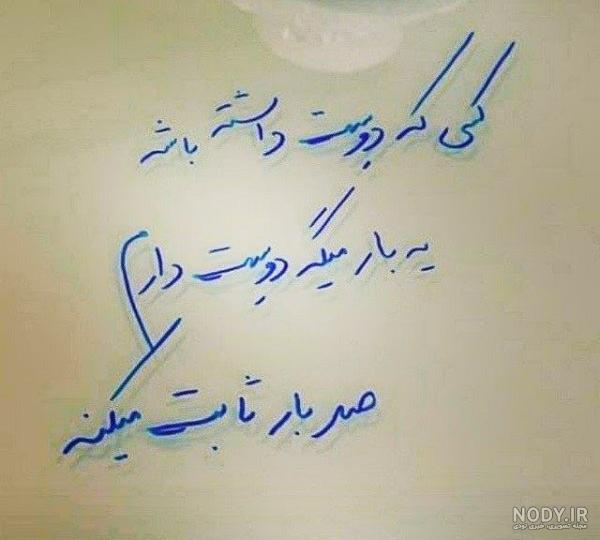 کسی که دوست داشته باشه
یه بار میگه دوست دارم
صد بار ثابت میکنه
NODY.IR
مجله تصویری، خبری نودی